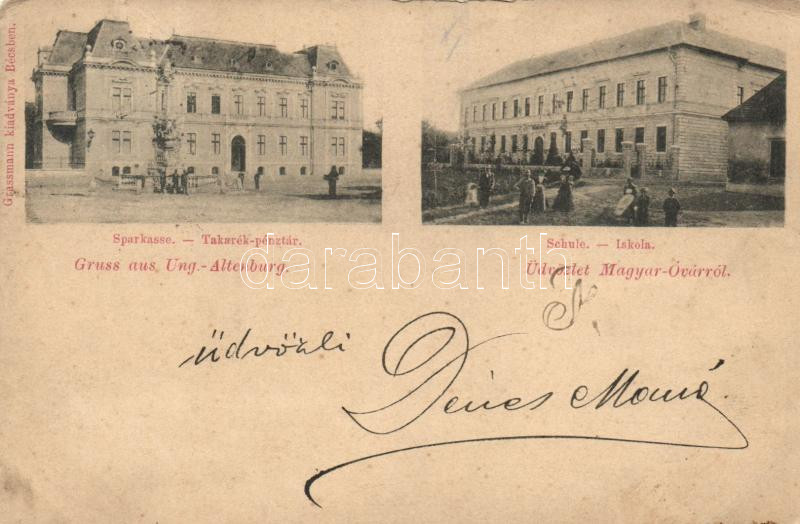 Grassmann kiadványa Bécsben.
Sparkasse. — Takarék-pénztár.
Schule. — Iskola.
Gruss aus Ung.-Altenburg.
Üdvözlet Magyar-Óvárról.
darabanth.com
üdvözli
Dénes